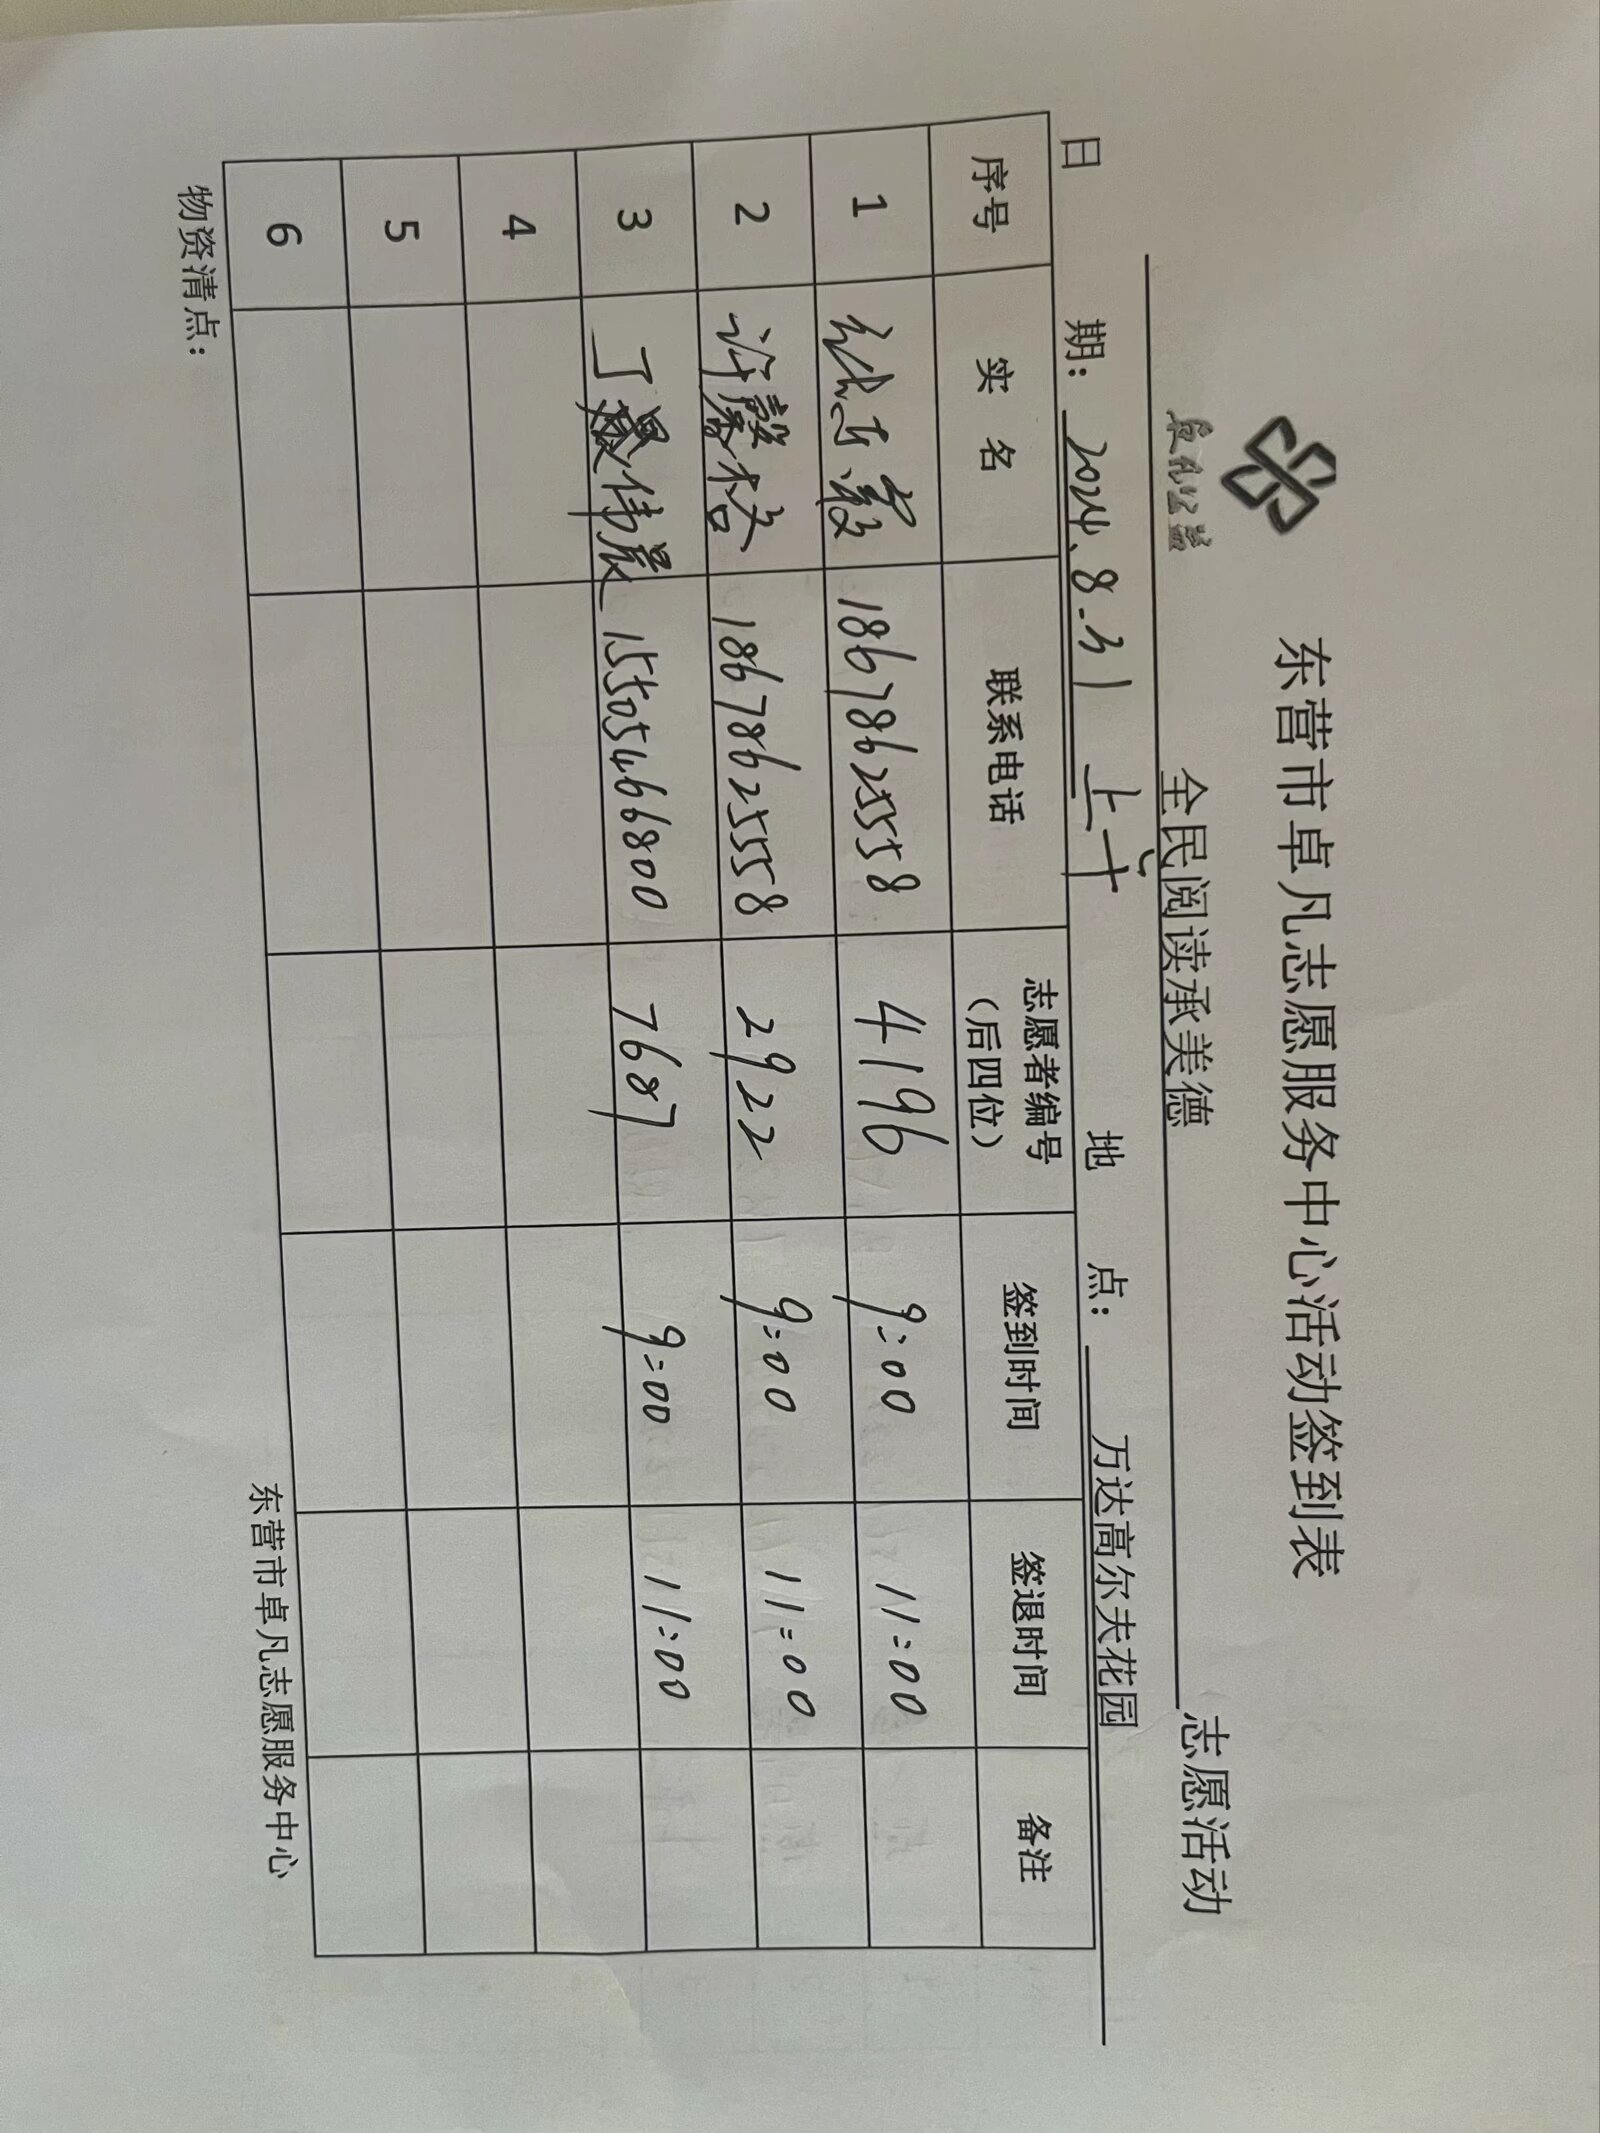 东营市卓凡志愿服务中心活动签到表
全民阅读承美德 志愿活动
日 期: 2024.8.31 上午 地 点: 万达高尔夫花园
序号 实 名 联系电话 志愿者编号(后四位) 签到时间 签退时间 备注
1 18678625558 4196 9:00 11:00
2 许馨格 18678625558 2922 9:00 11:00
3 丁伟晨 15505466800 7687 9:00 11:00
4
5
6
东营市卓凡志愿服务中心
物资清点: